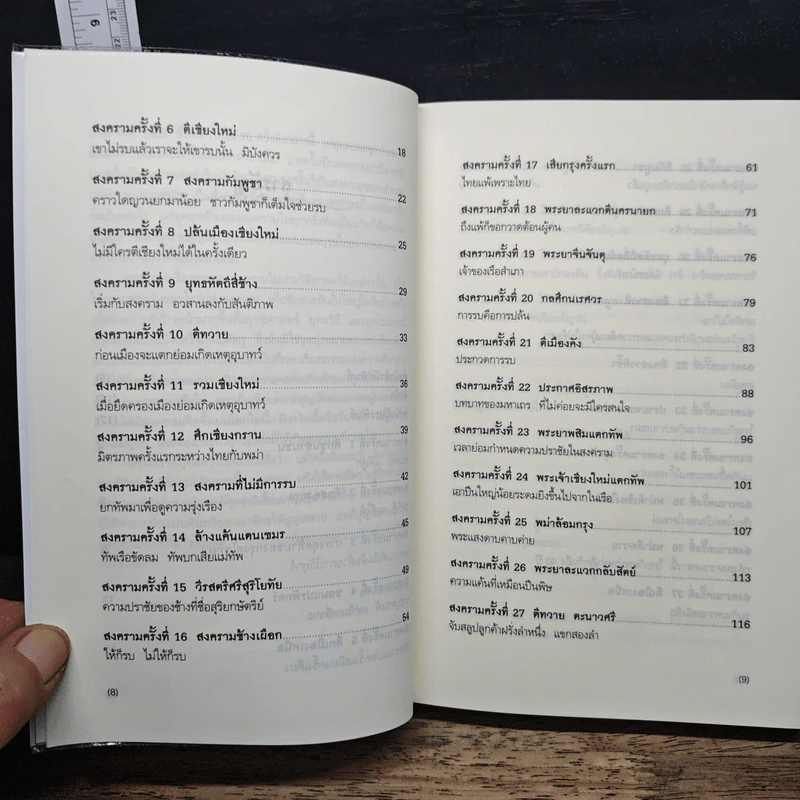 9
23
22
สงครามครั้งที่ 6 ตีเชียงใหม่ 18
เขาไม่รบแล้วเราจะให้เขารบนั้น มิบังควร
สงครามครั้งที่ 7 สงครามกัมพูชา 22
คราวใดญวนยกมาน้อย ชาวกัมพูชาก็เต็มใจช่วยรบ
สงครามครั้งที่ 8 ปล้นเมืองเชียงใหม่ 25
ไม่มีใครตีเชียงใหม่ได้ในครั้งเดียว
สงครามครั้งที่ 9 ยุทธหัตถีสี่ช้าง 29
เริ่มกับสงคราม อวสานลงกับสันติภาพ
สงครามครั้งที่ 10 ตีทวาย 33
ก่อนเมืองจะแตกย่อมเกิดเหตุอุบาทว์
สงครามครั้งที่ 11 รวมเชียงใหม่ 36
เมื่อยึดครองเมืองย่อมเกิดเหตุอุบาทว์
สงครามครั้งที่ 12 ศึกเชียงกราน 39
มิตรภาพครั้งแรกระหว่างไทยกับพม่า
สงครามครั้งที่ 13 สงครามที่ไม่มีการรบ 42
ยกทัพมาเพื่อดูความรุ่งเรือง
สงครามครั้งที่ 14 ล้างแค้นแดนเขมร 45
ทัพเรือขัดลม ทัพบกเสียแม่ทัพ
สงครามครั้งที่ 15 วีรสตรีศรีสุริโยทัย 49
ความปราชัยของช้างที่ชื่อสุริยกษัตริย์
สงครามครั้งที่ 16 สงครามช้างเผือก 54
ให้ก็รบ ไม่ให้ก็รบ
(8)
สงครามครั้งที่ 17 เสียกรุงครั้งแรก 61
ไทยแพ้เพราะไทย
สงครามครั้งที่ 18 พระยาละแวกตีนครนายก 71
ถึงแพ้ก็ขอกวาดต้อนผู้คน
สงครามครั้งที่ 19 พระยาจีนจันตุ 76
เจ้าของเรือสำเภา
สงครามครั้งที่ 20 กลศึกนเรศวร 79
การรบคือการปล้น
สงครามครั้งที่ 21 ตีเมืองคัง 83
ประกวดการรบ
สงครามครั้งที่ 22 ประกาศอิสรภาพ 88
บทบาทของมหาเถร ที่ไม่ค่อยจะมีใครสนใจ
สงครามครั้งที่ 23 พระยาพสิมแตกทัพ 96
เวลาย่อมกำหนดความปราชัยในสงคราม
สงครามครั้งที่ 24 พระเจ้าเชียงใหม่แตกทัพ 101
เอาปืนใหญ่น้อยระดมยิงขึ้นไปจากในเรือ
สงครามครั้งที่ 25 พม่าล้อมกรุง 107
พระแสงดาบคาบค่าย
สงครามครั้งที่ 26 พระยาละแวกกลับสัตย์ 113
ความแค้นที่เหมือนปืนพิษ
สงครามครั้งที่ 27 ตีทวาย ตะนาวศรี 116
จับสลุปลูกค้าฝรั่งลำหนึ่ง แขกสองลำ
(9)